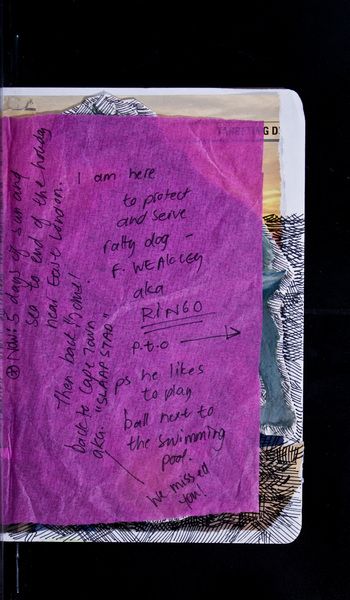 I am here
to protect
and serve
ratty dog -
F. WEALCLEY
aka
RINGO
p.t.o
ps he likes
to play
ball next to
the swimming
pool.
he missed
you!
Now: 5 days of sun and
sea to end of the
near East London.
Then back
back to Cape Town
aka. "SLAAP STAD"
TARGETING D